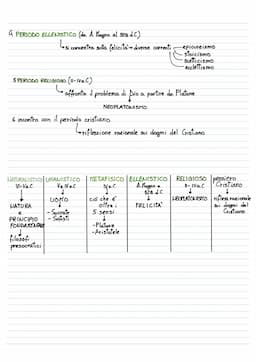 4 PERIODO ELLENISTICO (da A. Magno al 529 d.C)
si concentra sulla felicità → diverse correnti → EPICUREISMO
STOICISMO
SCETTICISMO
ECLETTISMO
5 PERIODO RELIGIOSO (II-IV d.C)
affronta il problema di Dio a partire da Platone
NEOPLATONISMO
6 incontro con il periodo cristiano
riflessione razionale sui dogmi del Cristiano
NATURALISTICO | UMANISTICO | METAFISICO | ELLENISTICO | RELIGIOSO | pensiero Cristiano
VI-V a.C | V a.C | IV a.C | A. Magno a 529 d.C | II-IV d.C | riflessione razionale sui dogmi del Cristiano
NATURA e PRINCIPIO FONDAMENTALE | UOMO | ciò che è oltre i 5 sensi | FELICITÀ | NEOPLATONISMO
filosofi presocratici | - Socrate - Sofisti | - Platone - Aristotele